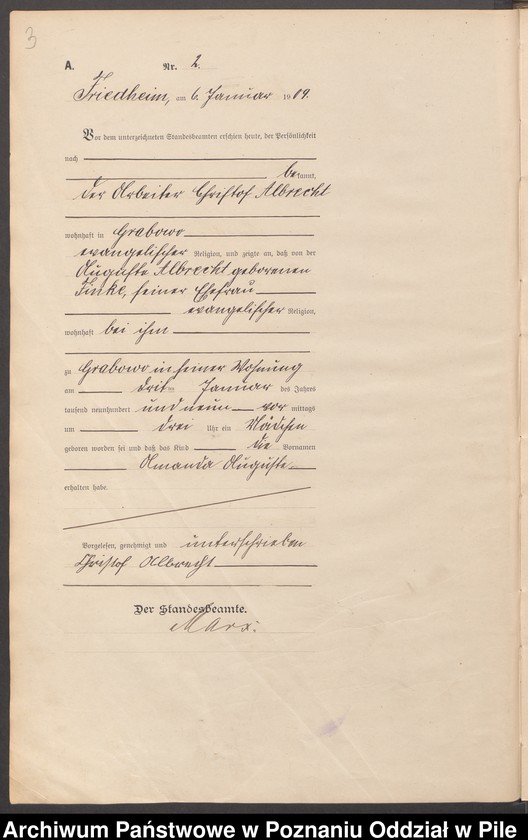 3
A.
Nr. 2.
Friedheim, am 6. Januar 1909.
Vor dem unterzeichneten Standesbeamten erschien heute, der Persönlichkeit
nach
bekannt,
der Arbeiter Christof Albrecht
wohnhaft in Grabowo
evangelischer Religion, und zeigte an, daß von der
Auguste Albrecht geborenen
Finke, seiner Ehefrau
evangelischer Religion,
wohnhaft bei ihm
zu Grabowo in seiner Wohnung
am dritten Januar des Jahres
tausend neunhundert und neun vor mittags
um drei Uhr ein Mädchen
geboren worden sei und daß das Kind die Vornamen
Amanda Auguste
erhalten habe.
Vorgelesen, genehmigt und unterschrieben
Christof Albrecht
Der Standesbeamte.
Marx.
Archiwum Państwowe w Poznaniu Oddział w Pile